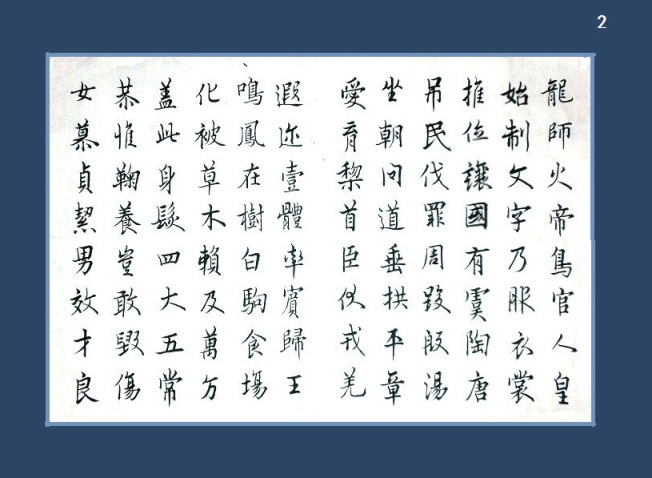 2
龍師火帝鳥官人皇
始制文字乃服衣裳
推位讓國有虞陶唐
吊民伐罪周發殷湯
坐朝問道垂拱平章
愛育黎首臣伏戎羌
遐迩壹體率賓歸王
鳴鳳在樹白駒食場
化被草木賴及萬方
盖此身髮四大五常
恭惟鞠養豈敢毀傷
女慕貞絜男效才良